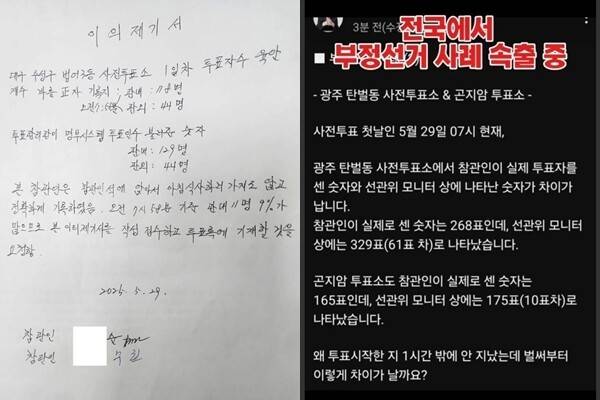 이의제기서
대구 수성구 범어3동 사전투표소 1일차 투표자수 육안
계수 바를 정자 기록지: 관내: 118명
오전 7:58분 관외: 44명
투표관리관이 명부시스템 투표인수 불러준 숫자
관내: 129명
관외: 44명
본 참관인은 참관인석에 앉아서 아침식사하러 가지도 않고
정확하게 기록하였음. 오전 7시58분 기준 관내 11명 9%가
많으므로 본 이의제기서를 작성 접수하고 투표록에 기재할 것을
요청함.
2025. 5. 29.
참관인
참관인
3분 전(수정
전국에서
부정선거 사례 속출 중
- 광주 탄벌동 사전투표소 & 곤지암 투표소 -
사전투표 첫날인 5월 29일 07시 현재,
광주 탄벌동 사전투표소에서 참관인이 실제 투표자를
센 숫자와 선관위 모니터 상에 나타난 숫자가 차이가
납니다.
참관인이 실제로 센 숫자는 268표인데, 선관위 모니터
상에는 329표(61표 차)로 나타났습니다.
곤지암 투표소도 참관인이 실제로 센 숫자는
165표인데, 선관위 모니터 상에는 175표(10표차)로
나타났습니다.
왜 투표시작한 지 1시간 밖에 안 지났는데 벌써부터
이렇게 차이가 날까요?